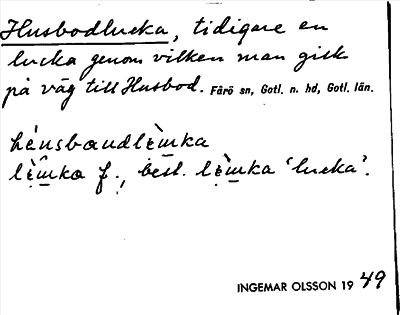 Husbodlucka, tidigare en
lucka genom vilken man gick
på väg till Husbod. Fårö sn, Gotl. n. hd, Gotl. län.
lucka f., best. 'lucka'.
INGEMAR OLSSON 19 49